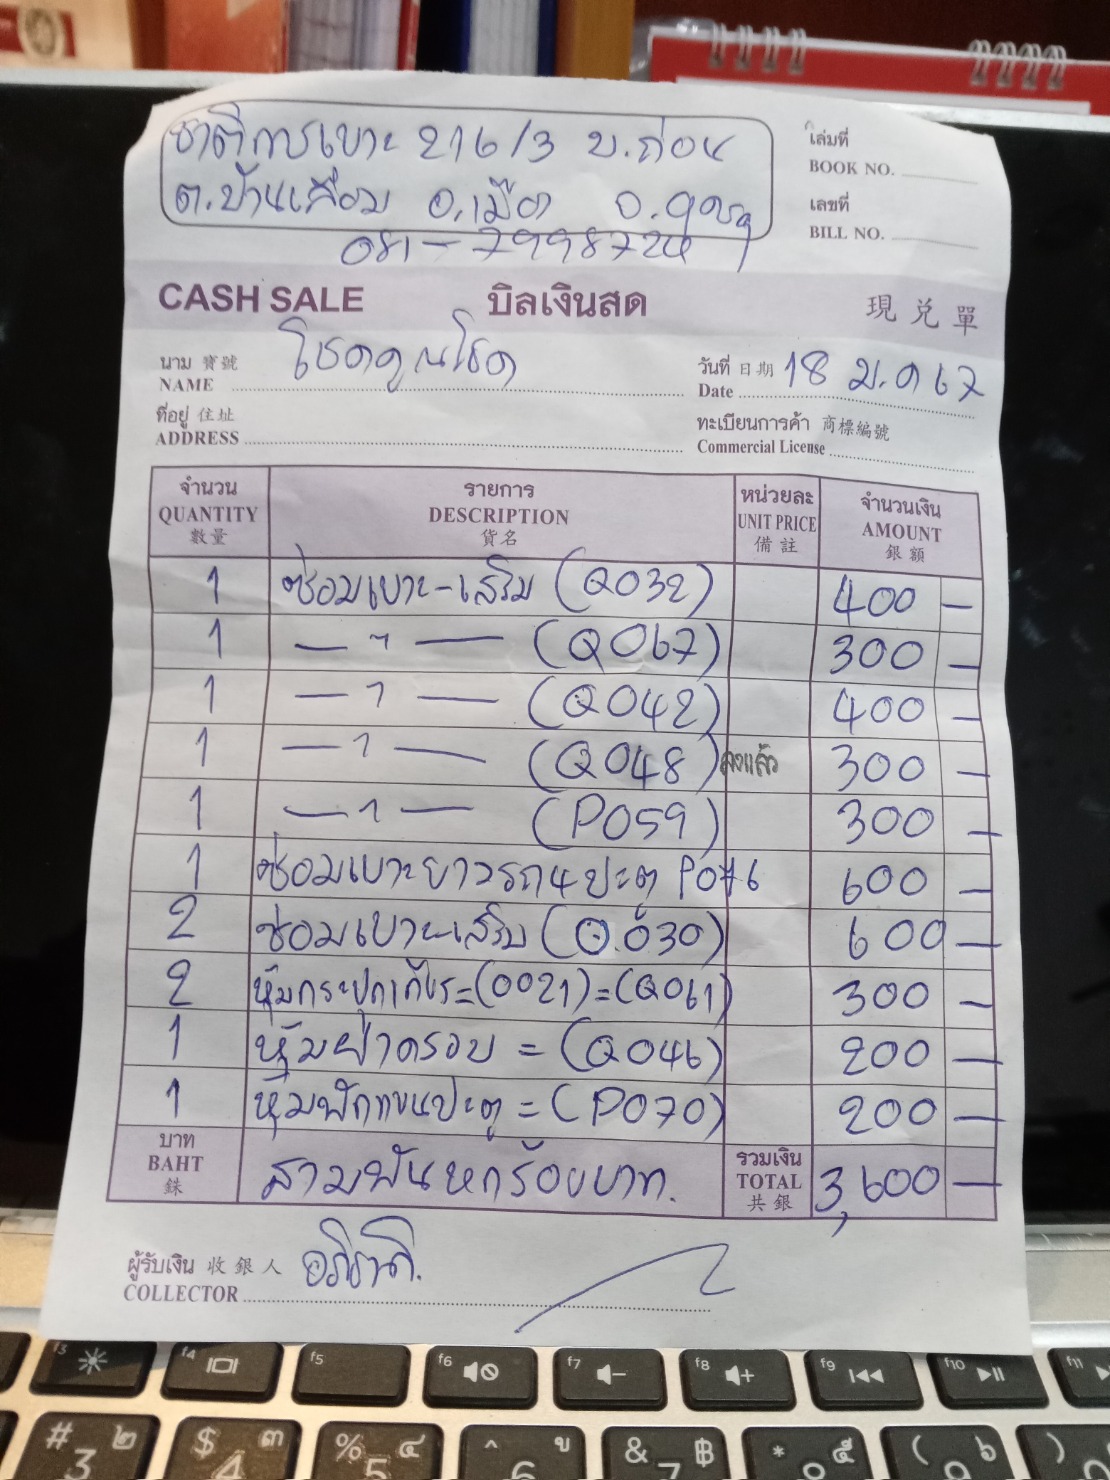 ชาติการเบาะ 216/3 บ.ถ่อน
ต.บ้านเลื่อม อ.เมือง จ.อุดรฯ
081-7998724
เล่มที่
BOOK NO.
เลขที่
BILL NO.
CASH SALE บิลเงินสด 現兑單
นาม 寶號 NAME โชคคูณโชค
วันที่ 日期 Date 18 ม.ค 67
ที่อยู่ 住址 ADDRESS
ทะเบียนการค้า 商標編號 Commercial License
จำนวน QUANTITY 數量 รายการ DESCRIPTION 貨名 หน่วยละ UNIT PRICE 備註 จำนวนเงิน AMOUNT 銀額
1 ซ่อมเบาะ-เสริม (Q032) 400 -
1 — " — (Q067) 300 -
1 — " — (Q042) 400 -
1 — " — (Q048) ลงแล้ว 300 -
1 — " — (P059) 300 -
1 ซ่อมเบาะยาวรถ4ปะตู P076 600 -
2 ซ่อมเบาะ-เสริม (Q.030) 600 -
2 หุ้มกระปุกเกียร์=(0021)=(Q061) 300 -
1 หุ้มฝาครอบ = (Q046) 200 -
1 หุ้มพักแขนปะตู = (P070) 200 -
บาท BAHT 銖 สามพันหกร้อยบาท. รวมเงิน TOTAL 共銀 3,600 -
ผู้รับเงิน 收銀人 COLLECTOR
f3 f4 f5 f6 f7 f8 f9 f10 f11
# 3 ๒ $ 4 ๓ % 5 ๔ ^ 6 ข & 7 ฿ * ๕ ( ๖ )